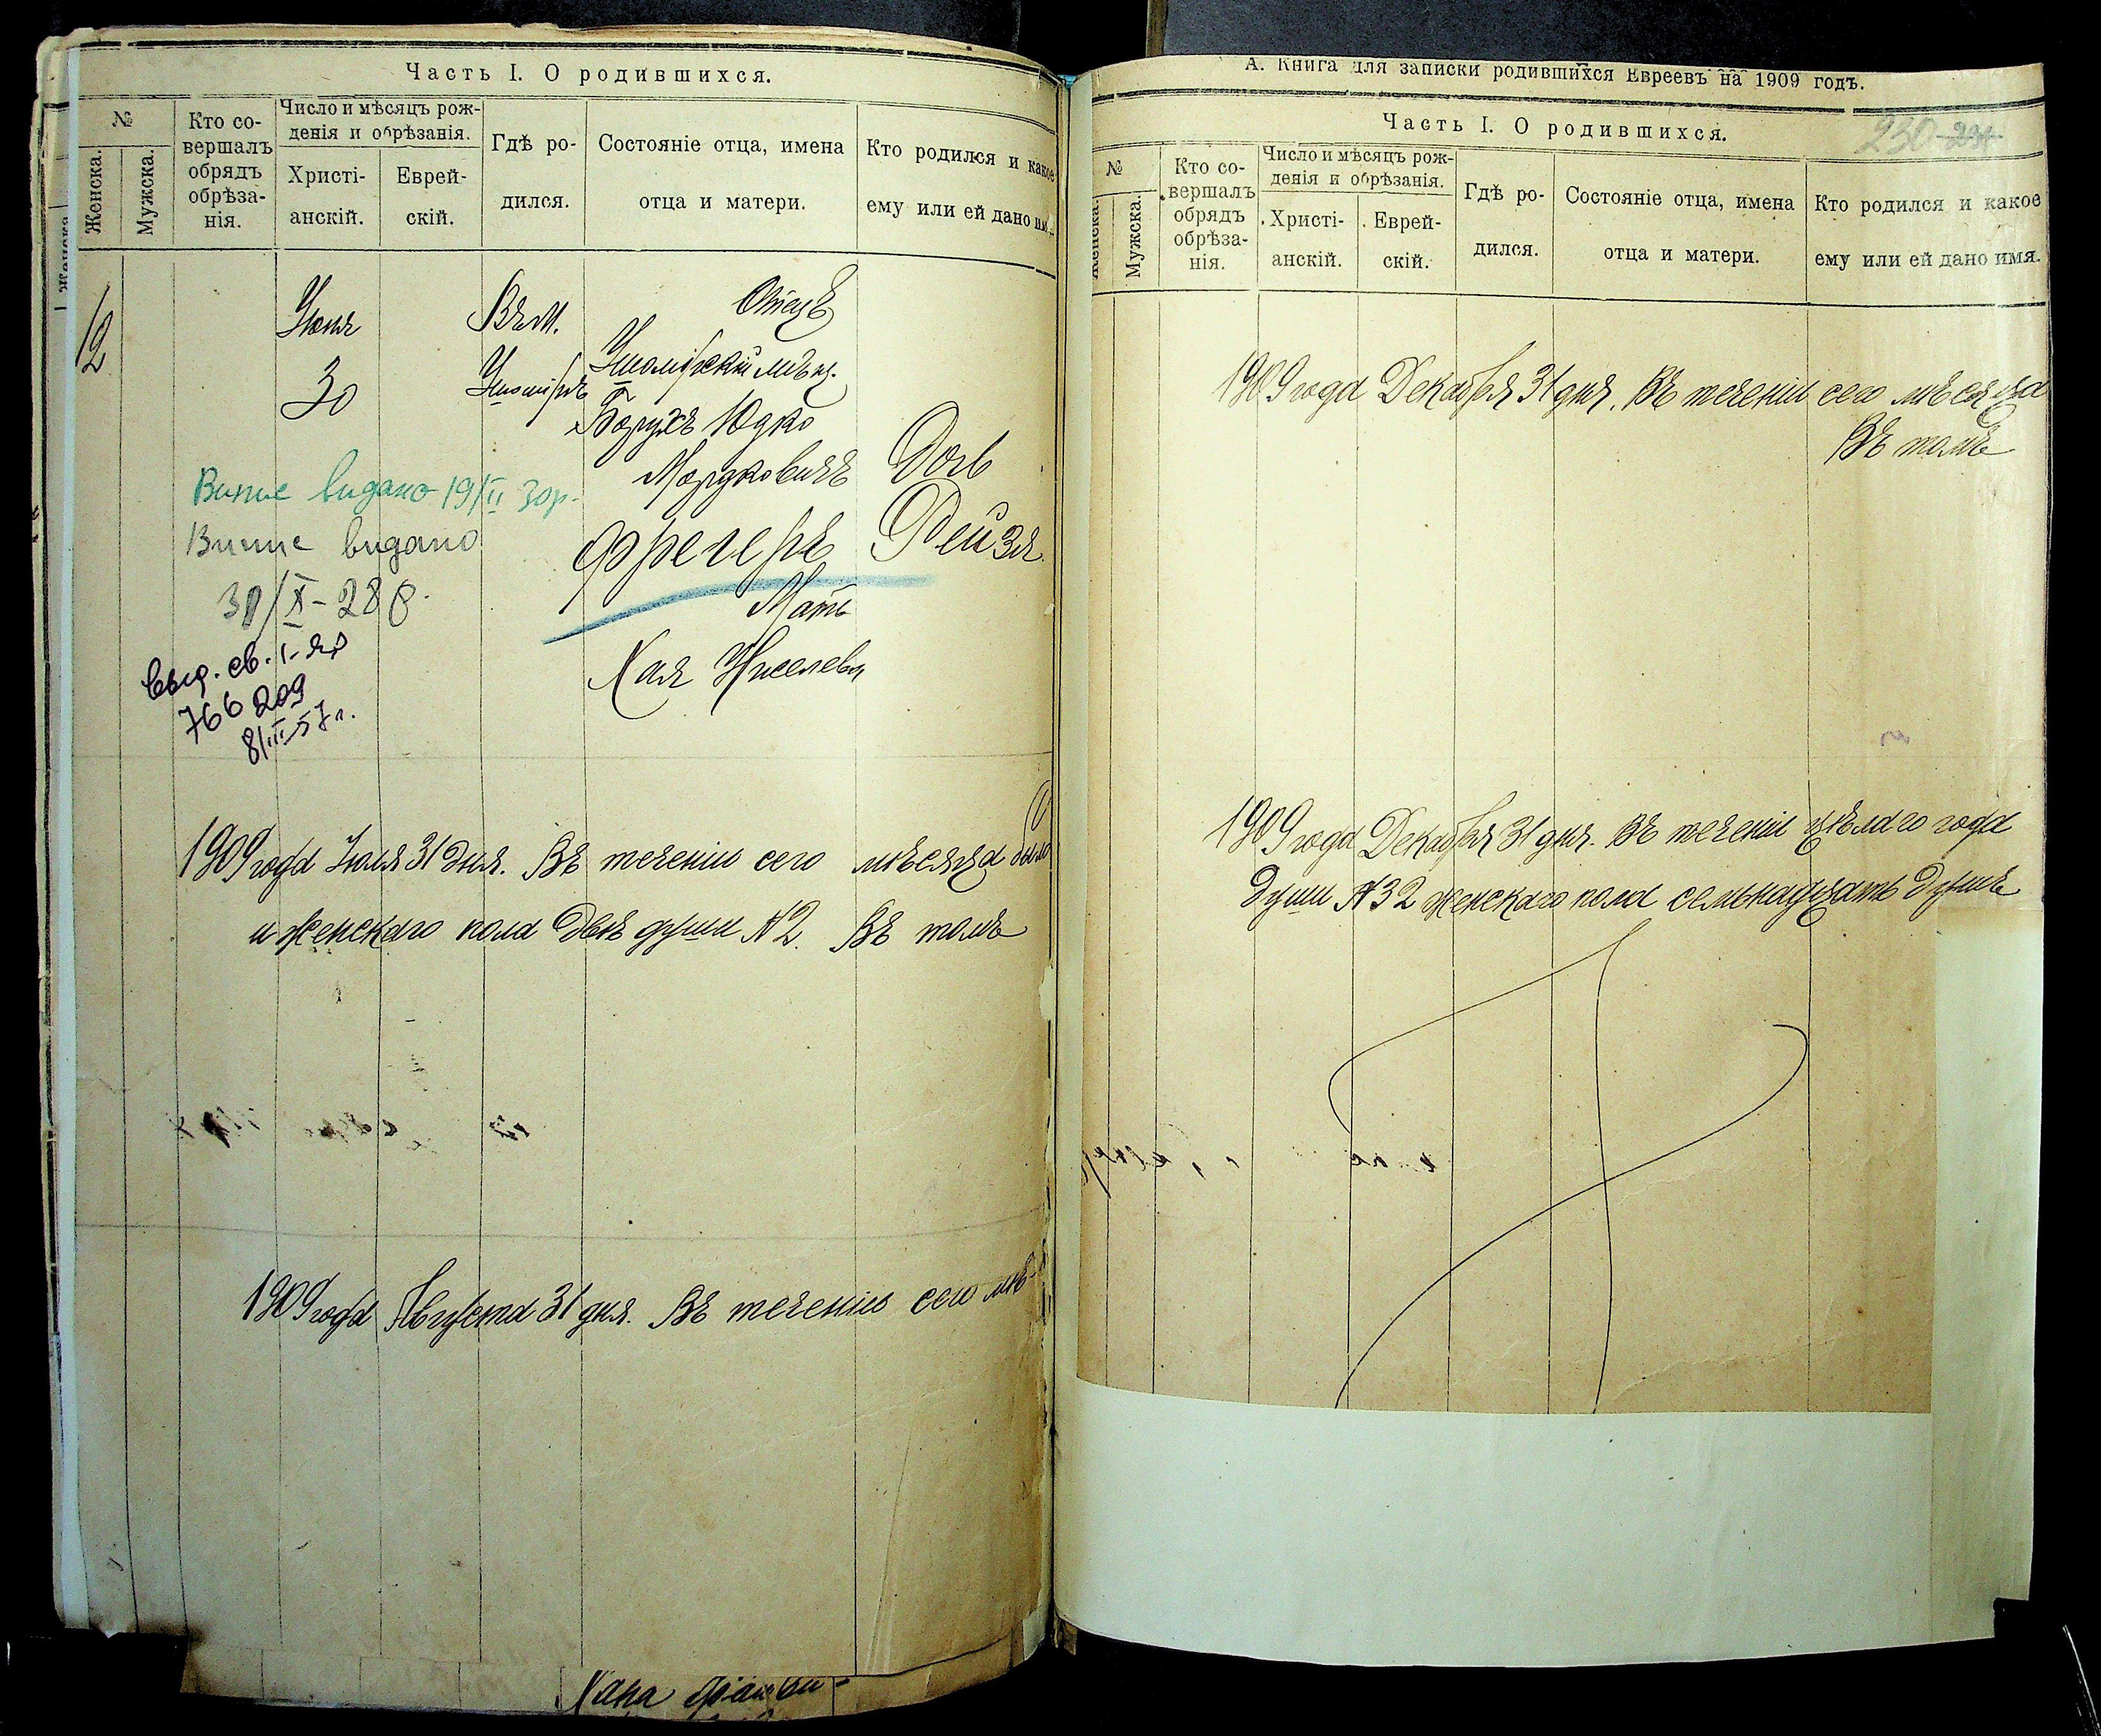 Часть I. О родившихся.
№
Женска.
Мужска.
Кто со-
вершалъ
обрядъ
обрѣза-
нія.
Число и мѣсяцъ рож-
денія и обрѣзанія.
Христі-
анскій.
Еврей-
скій.
Гдѣ ро-
дился.
Состояніе отца, имена
отца и матери.
Кто родился и какое
ему или ей дано
12
30
Въ м.
Отецъ
Борухъ Юдко
Мордковичъ
Фрегеръ
Мать
Хая
Дочь
Рейзя
видано 19/II 30р.
видано
30/X-28 р.
выд. св.
766209
8/III-57г.
1909 года Июля 31 дня. Въ теченіи сего мѣсяца было
и женскаго пола двѣ души № 2. Въ томъ
1909 года Августа 31 дня. Въ теченіи сего мѣ-
Хана
А. Книга для записки родившихся Евреевъ на 1909 годъ.
Часть I. О родившихся.
230
№
Женска.
Мужска.
Кто со-
вершалъ
обрядъ
обрѣза-
нія.
Число и мѣсяцъ рож-
денія и обрѣзанія.
Христі-
анскій.
Еврей-
скій.
Гдѣ ро-
дился.
Состояніе отца, имена
отца и матери.
Кто родился и какое
ему или ей дано имя.
1909 года Декабря 31 дня. Въ теченіи сего мѣсяца
Въ томъ
1909 года Декабря 31 дня. Въ теченіи цѣлаго года
души № 32 женскаго пола семьнадцать душъ